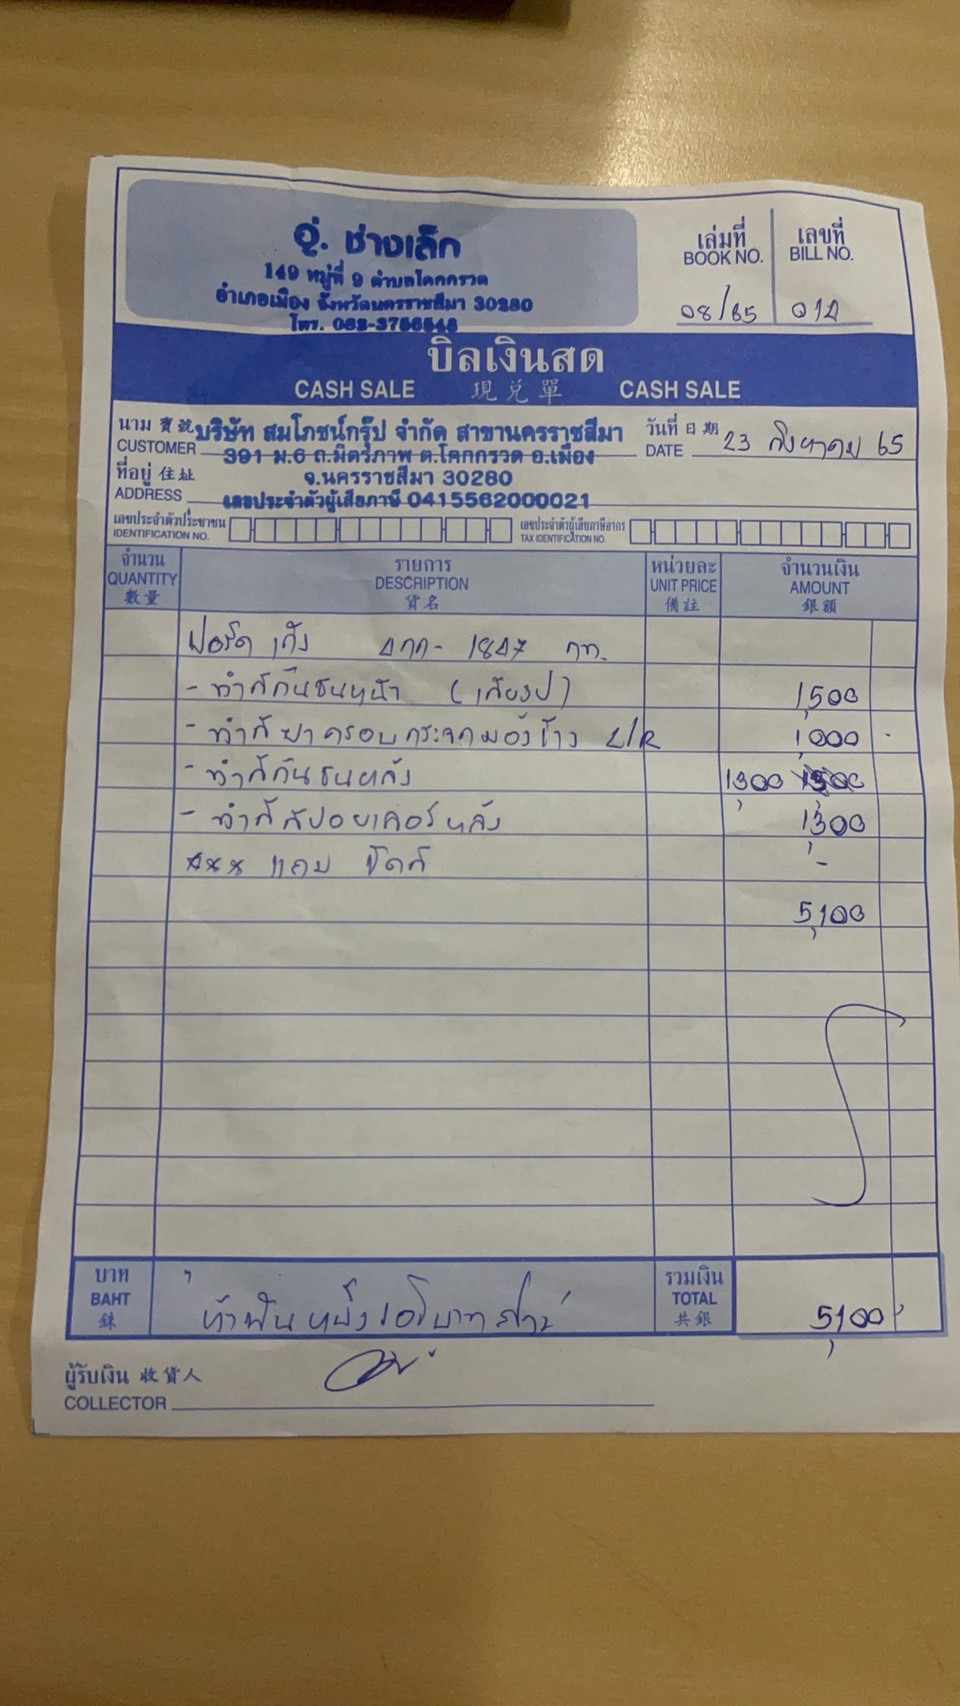 อู่. ช่างเล็ก
149 หมู่ที่ 9 ตำบลโคกกรวด
อำเภอเมือง จังหวัดนครราชสีมา 30280
โทร.
เล่มที่ เลขที่
BOOK NO. BILL NO.
08/65
บิลเงินสด
CASH SALE 現兌單 CASH SALE
นาม 寶號 บริษัท สมโภชน์กรุ๊ป จำกัด สาขานครราชสีมา วันที่ 日期
CUSTOMER 391 ม.6 ถ.มิตรภาพ ต.โคกกรวด อ.เมือง DATE 23 สิงหาคม 65
ที่อยู่ 住址 จ.นครราชสีมา 30280
ADDRESS เลขประจำตัวผู้เสียภาษี 0415562000021
เลขประจำตัวประชาชน เลขประจำตัวผู้เสียภาษีอากร
IDENTIFICATION NO. TAX IDENTIFICATION NO.
จำนวน รายการ หน่วยละ จำนวนเงิน
QUANTITY DESCRIPTION UNIT PRICE AMOUNT
數量 貨名 備註 銀額
ฟอร์ด เก๋ง 1847 กท.
- ทำสีกันชนหน้า 1,500
- ทำสีฝาครอบกระจกมองข้าง L/R 1,000
- ทำสีกันชนหลัง 1,300
- ทำสีสปอยเลอร์หลัง 1,300
*** แถม ขัดสี -
5,100
บาท รวมเงิน
BAHT ห้าพันหนึ่งร้อยบาทถ้วน TOTAL 5,100
銖 共銀
ผู้รับเงิน 收貨人
COLLECTOR